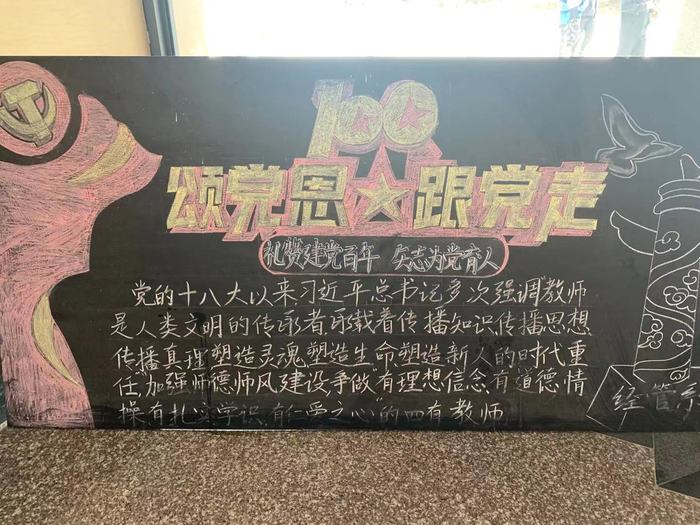 100
颂党恩 跟党走
礼赞建党百年 矢志为党育人
党的十八大以来习近平总书记多次强调"教师
是人类文明的传承者承载着传播知识传播思想
传播真理塑造灵魂塑造生命塑造新人的时代重
任,加强师德师风建设,争做"有理想信念,有道德情
操,有扎实学识,有仁爱之心"的四有教师
经管系